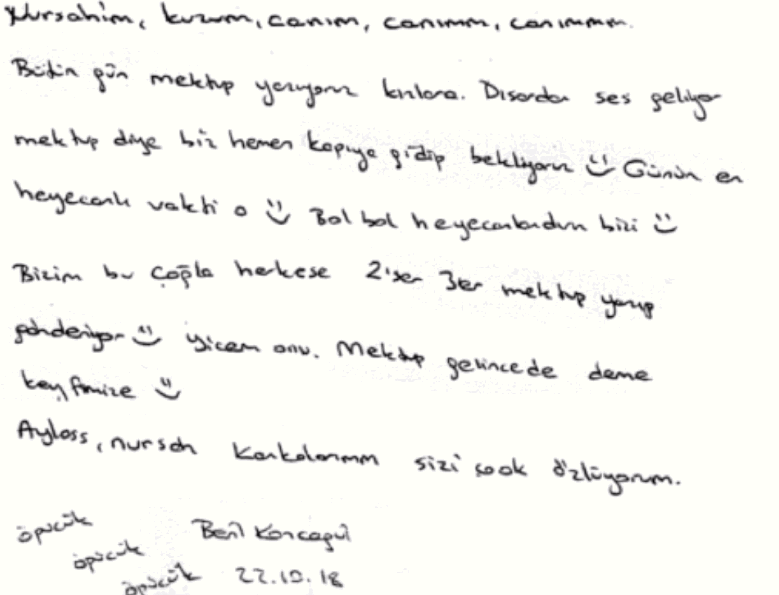 Nurşahim, kuzum, canım, canımm, canımmm.
Bütün gün mektup yazıyoruz kızlara. Dısardan ses geliyor
mektup diye biz hemen kapıya gidip bekliyoruz Günün en
heyecanlı vakti o Bol bol heyecanlandırın bizi
Bizim bu Çağla herkese 2'ser 3er mektup yazıp
gönderiyor yicem onu. Mektup gelincede deme
keyfimize
Ayloss, nursah Kankalarımm sizi çook özlüyorum.
öpücük Beril
öpücük
öpücük 22.10.18